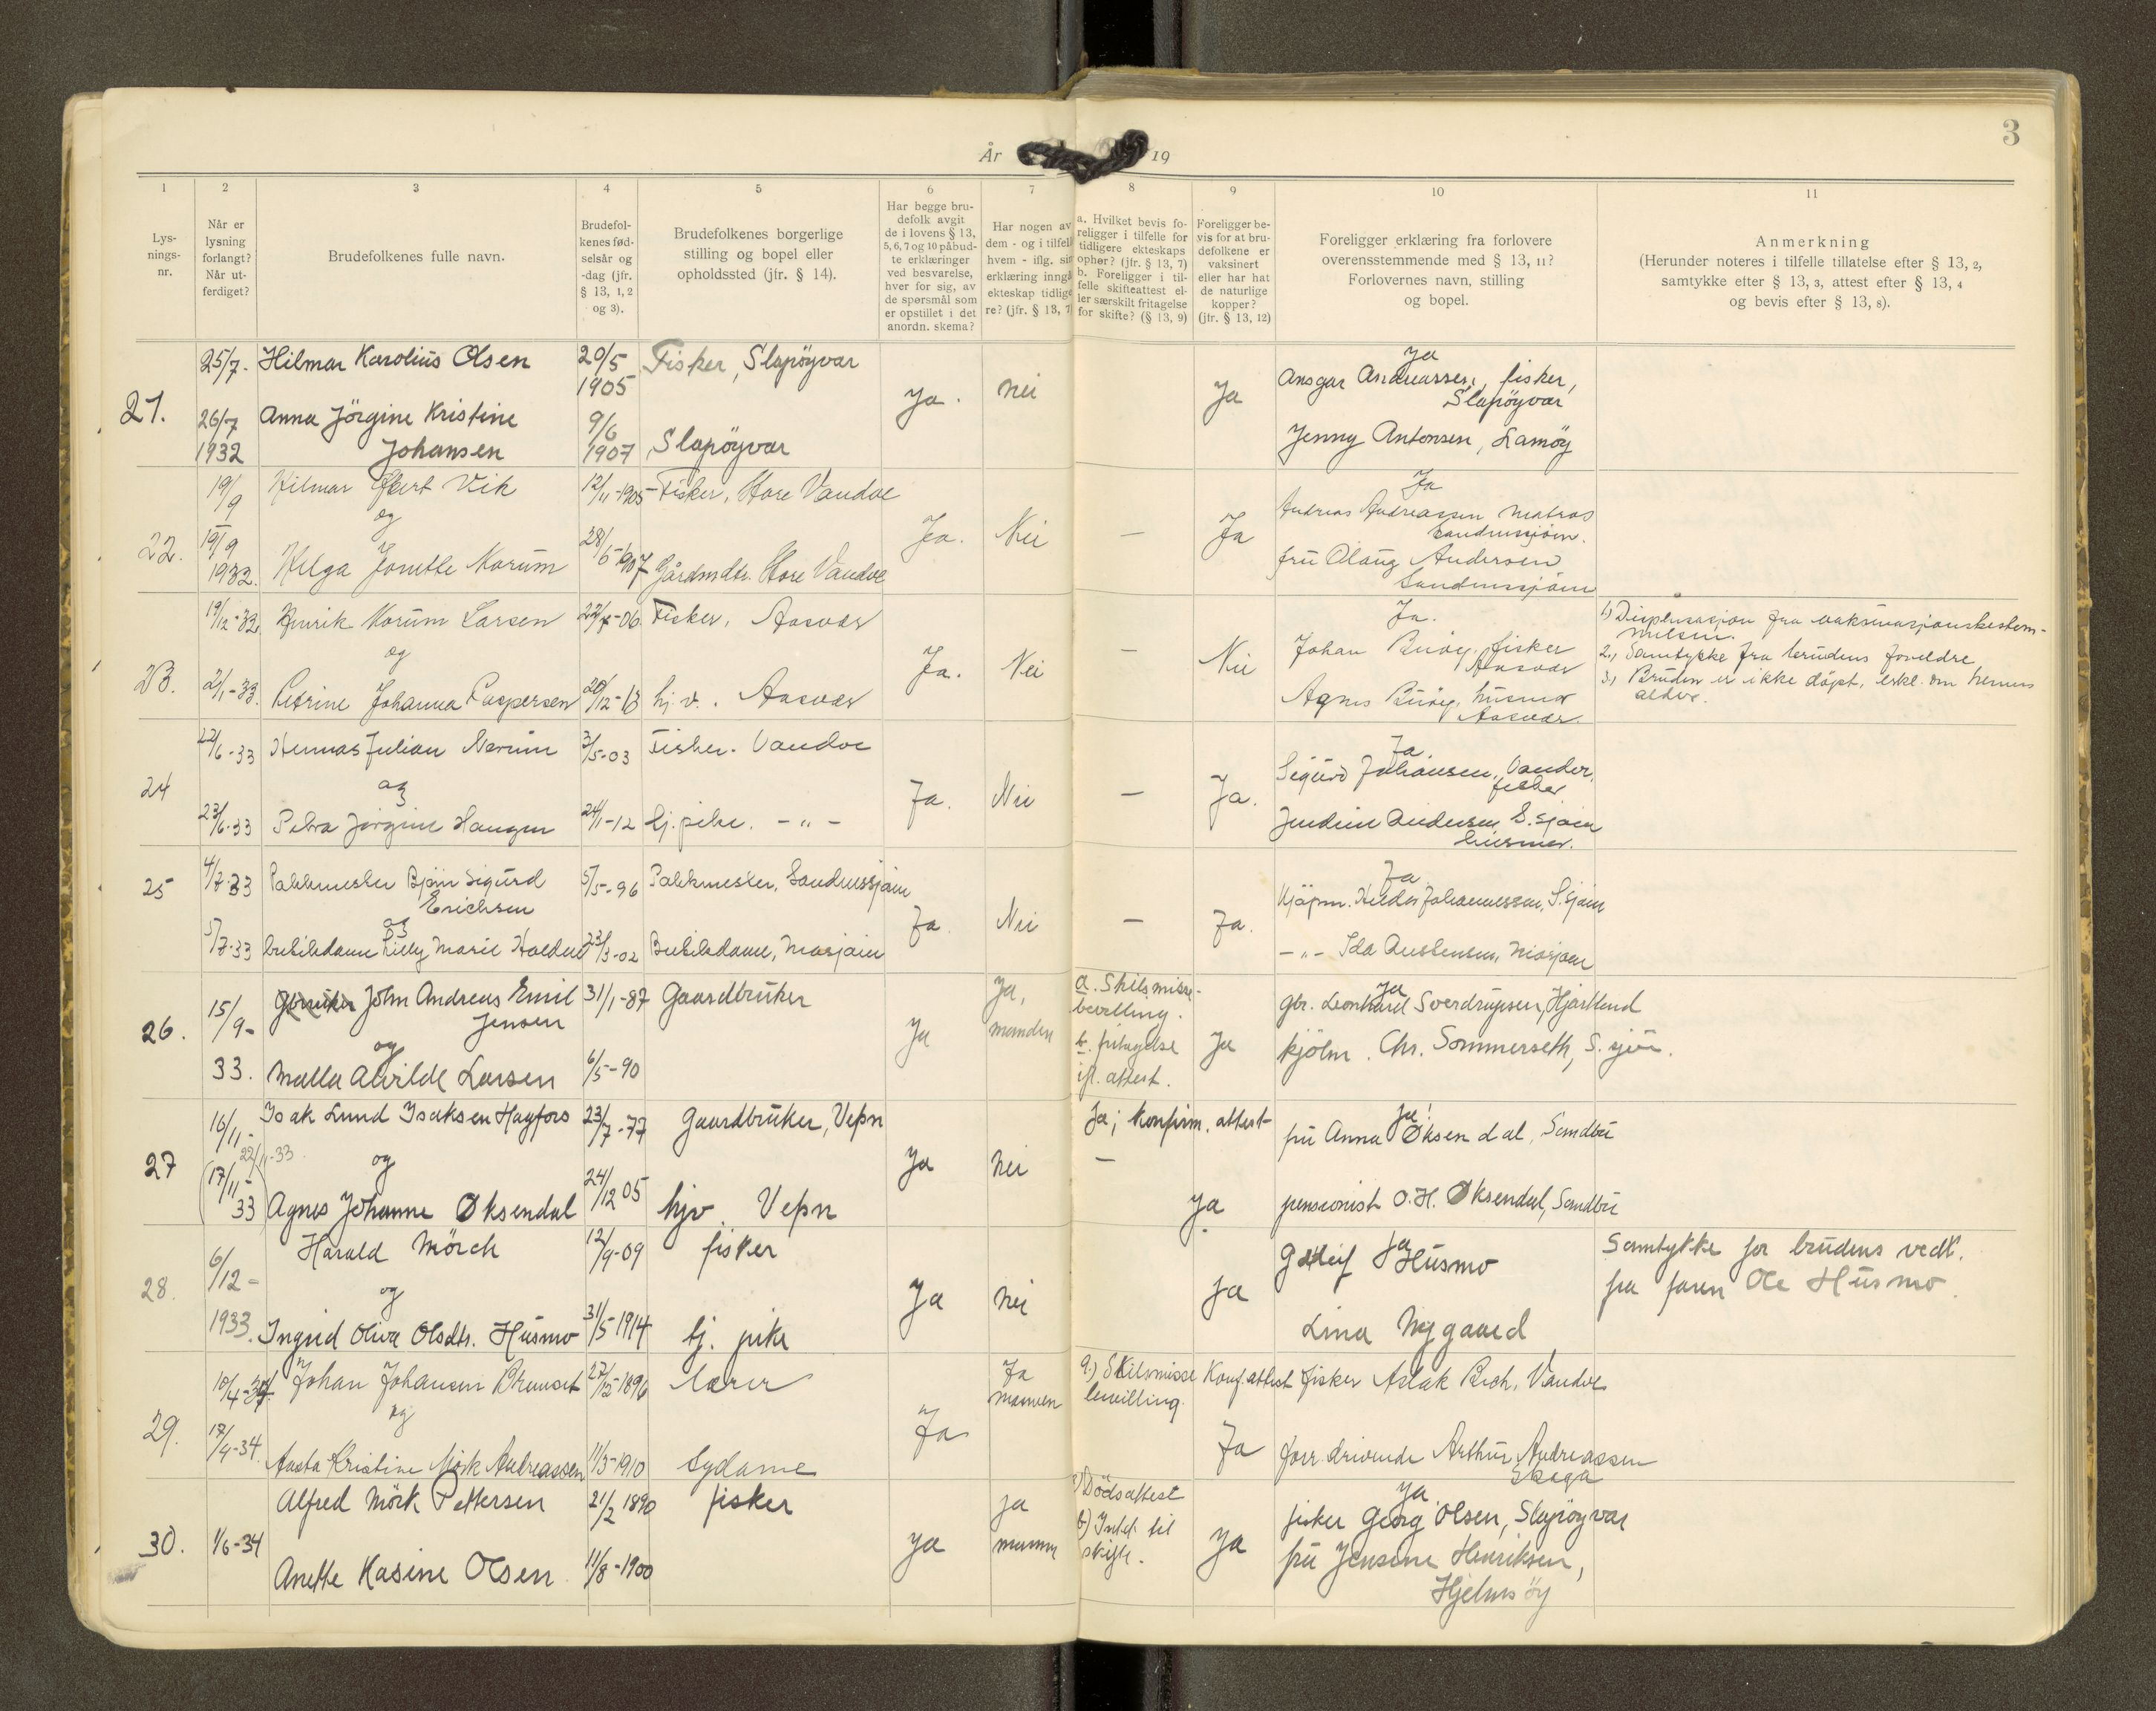 3
År 19
1 2 3 4 5 6 7 8 9 10 11
Lys-
nings-
nr.
Når er
lysning
forlangt?
Når ut-
ferdiget?
Brudefolkenes fulle navn.
Brudefol-
kenes fød-
selsår og
-dag (jfr.
§ 13, 1, 2
og 3).
Brudefolkenes borgerlige
stilling og bopel eller
opholdssted (jfr. § 14).
Har begge bru-
defolk avgit
de i lovens § 13,
5, 6, 7 og 10 påbud-
te erklæringer
ved besvarelse,
hver for sig, av
de spørsmål som
er opstillet i det
anordn. skema?
Har nogen av
dem - og i tilfell
hvem - iflg. sin
erklæring inngå
ekteskap tidlige
re? (jfr. § 13, 7
a. Hvilket bevis fo-
religger i tilfelle for
tidligere ekteskaps
ophør? (jfr. § 13, 7)
b. Foreligger i til-
felle skifteattest el-
ler særskilt fritagelse
for skifte? (§ 13, 9)
Foreligger be-
vis for at bru-
defolkene er
vaksinert
eller har hat
de naturlige
kopper?
(jfr. § 13, 12)
Foreligger erklæring fra forlovere
overensstemmende med § 13, 11?
Forlovernes navn, stilling
og bopel.
Anmerkning
(Herunder noteres i tilfelle tillatelse efter § 13, 2,
samtykke efter § 13, 3, attest efter § 13, 4
og bevis efter § 13, 8).
21.
25/7.
26/7
1932
Hilmar Karolius Olsen
Anna Jörgine Kristine
Johansen
20/5
1905
9/6
1907
Fisker, Slapöyvar
Slapöyvar
Ja.
nei
Ja
Ja
Ansgar Andreassen, fisker,
Slapöyvar
Jenny Antonsen, Lamöy
22.
19/9
19/9
1932.
Hilmar Vik
og
Helga Jonette Norum
12/11-1905
28/5-1907
Fisker, Store Vandve
Gårdmdtr. Store Vandve
Ja.
Nei
—
Ja
Ja
Andreas Andreassen matros
Sandnessjøen.
fru Olaug Andersen
Sandnessjøen
23.
19/12-32.
2/1-33.
Henrik Norum Larsen
og
Petrine Johanna Caspersen
-06
20/12-13
Fisker, Aasvær
hj. v. Aasvær
Ja.
Nei
—
Nei
Ja.
Johan Buöy, fisker
Aasvær
Agnes Buöy, husmor
Aasvær.
1.) Displensasjon fra vaksinasjonsbestem-
melsen.
2., Samtykke fra brudens foreldre
3, Bruden er ikke döpt, erkl. om hennes
alder.
24
22/6-33
23/6-33
Hermas Julian Norum
og
Petra Jörgine Haugen
3/5-03
24/1-12
Fisker. Vandve
hj. pike. -"-
Ja.
Nei
—
Ja.
Ja
Sigurd Johansen, Vandve,
fisker
Andersen S.sjøen
husmor.
25
4/7-33
5/7-33
Pakkmester Björn Sigurd
Erichsen
og
Lilly Marie
5/5-96
23/3-02
Pakkmester, Sandnessjøen
Mosjøen
Ja.
Nei
—
Ja.
Ja
Kjøpm. Johannessen, S.sjøen
-"- Ida Mosjøen
26.
15/9-
33.
John Andreas Emil
Jensen
og
Malla Alvilde Larsen
31/1-87
6/5-90
Gaardbruker
Ja
Ja,
manden
a. Skilsmisse-
bevilling.
b. fritagelse
ifl. attest.
Ja
Ja
gbr. Leonhard Sverdrupsen, Hjartland
kjölm. Chr. Sommerseth, S. sjøen.
27
16/11-
22/11-33
(17/11-
33
Isak Lund Isaksen Hagfors
og
Agnes Johanne Øksendal
23/7-77
24/12 05
Gaardbruker, Vefsn
hjv. Vefsn
Ja
nei
Ja; konfirm. attest-
—
Ja
Ja!
fru Anna Øksendal, Sandbu
pensionist O. H. Øksendal, Sandbu
28.
6/12-
1933.
Harald Mörch
og
Ingrid Oliva Olsdtr. Husmo
12/9-09
31/5-1914
fisker
tj. pike
Ja
nei
Ja
Ja
Husmo
Lina Nygaard
Samtykke for brudens vedk.
fra faren Ole Husmo.
29.
10/4-34.
17/4-34.
Johan Johansen
og
Aasta Kristine Mörk Andreassen
27/12-1896
11/3-1910
lærer
Sydame
Ja
Ja
mannen
a.) Skilsmisse
bevilling.
Konf. attest
Ja
fisker Aslak Bech, Vandve
forr. drivende Arthur Andreassen
Skaga
30.
1/6-34
Alfred Mörk Pettersen
Anette Kasine Olsen
21/2 1890
11/8-1900
fisker
Ja
ja
mannen
a) Dödsattest
b) Intet til
skifte.
Ja
Ja
fisker Georg Olsen, Slapöyvar
fru Jensine Henriksen,
Hjelmsöy